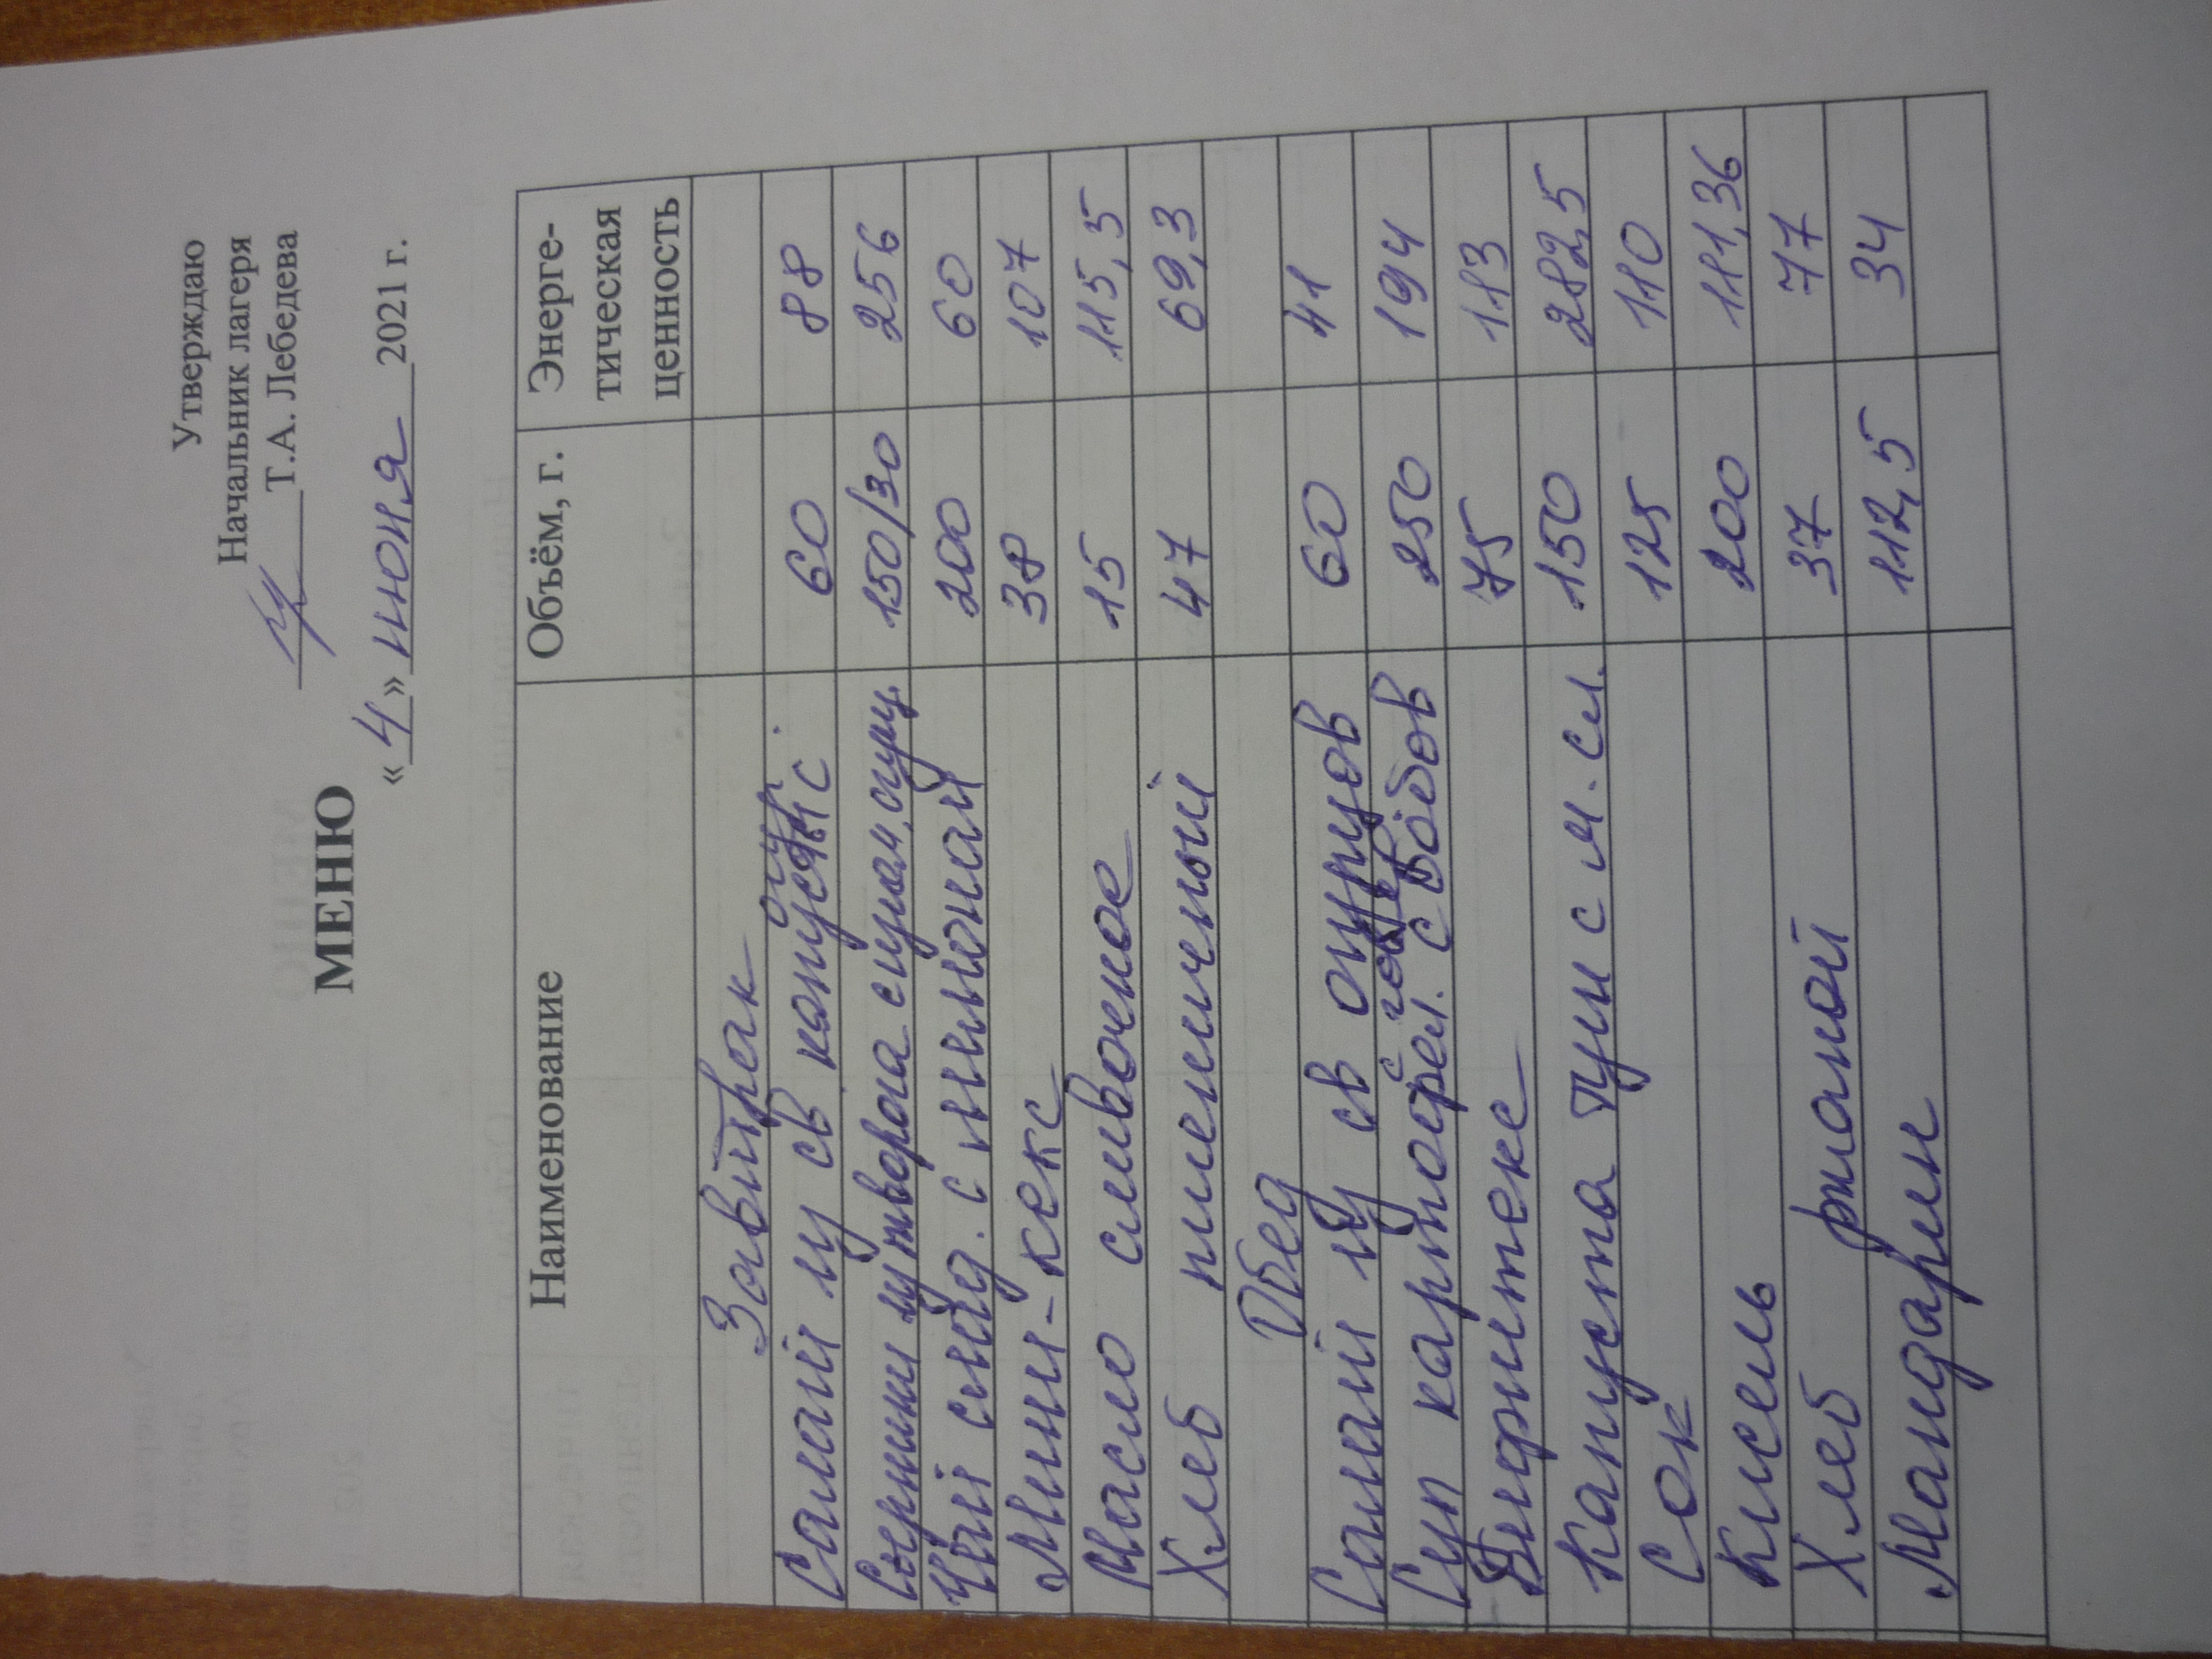 Утверждаю
Начальник лагеря
Т.А. Лебедева
МЕНЮ
«4» июня 2021 г.
Наименование Объём, г. Энерге-
тическая
ценность
Завтрак
Салат из св капусты с огур. 60 88
Сырники из творога с цукат, сгущ. 150/30 256
Чай слад. с лимоном 200 60
Мини-кекс 38 107
Масло сливочное 15 115,5
Хлеб пшеничный 47 69,3
Обед
Салат из св огурцов 60 41
Суп картофел. с бобов 250 194
Бифштекс 75 183
Капуста туш с м. сл. 150 282,5
Сок 125 110
Кисель 200 111,36
Хлеб ржаной 37 77
Мандарин 112,5 34